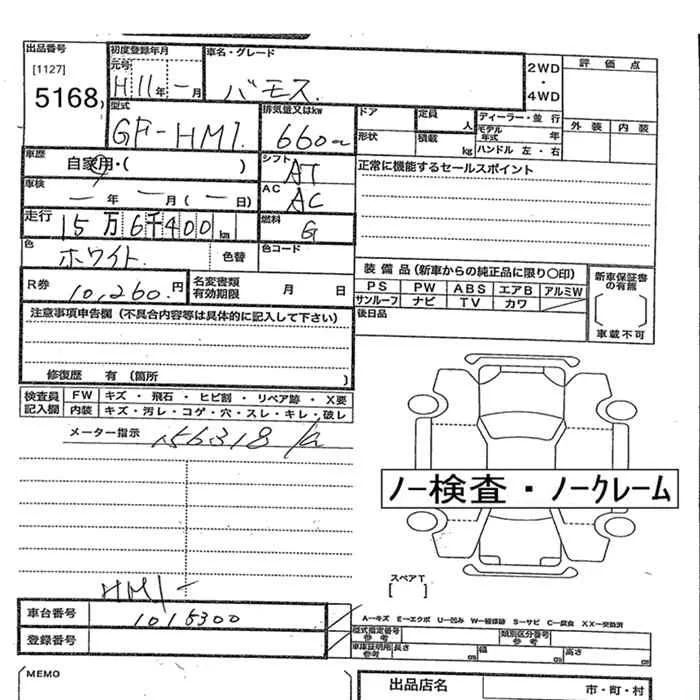 出品番号 初度登録年月 車名・グレード 評価点
[1127] 元号 2WD
5168 H11年-月 バモス ・4WD
型式 排気量又はkw ドア 定員 人 ディーラー・並行 外装 内装
GF-HM1 660cc 形状 積載 kg モデル年式 年
ハンドル 左・右
車歴 自家用・( ) シフト AT 正常に機能するセールスポイント
車検 -年 -月(-日) AC AC
走行 15万6千400km 燃料 G
色 ホワイト 色替 色コード
装備品(新車からの純正品に限り○印) 新車保証書の有無
R券 10,260円 名変書類有効期限 月 日 PS PW ABS エアB アルミW
サンルーフ ナビ TV カワ
注意事項申告欄(不具合内容等は具体的に記入して下さい) 後日品 車載不可
修復歴 有(箇所 )
検査員 FW キズ・飛石・ヒビ割・リペア跡・X要
記入欄 内装 キズ・汚レ・コゲ・穴・スレ・キレ・破レ
メーター指示 156318
ノー検査・ノークレーム
スペアT
[ ]
HM1-
車台番号 1015300
A−キズ E−エクボ U−凹み W−補修跡 S−サビ C−腐食 XX−交換済
登録番号 型式指定番号参考 類別区分番号参考
車庫証明用参考 長さ cm 幅 cm 高さ cm
MEMO 出品店名 市・町・村